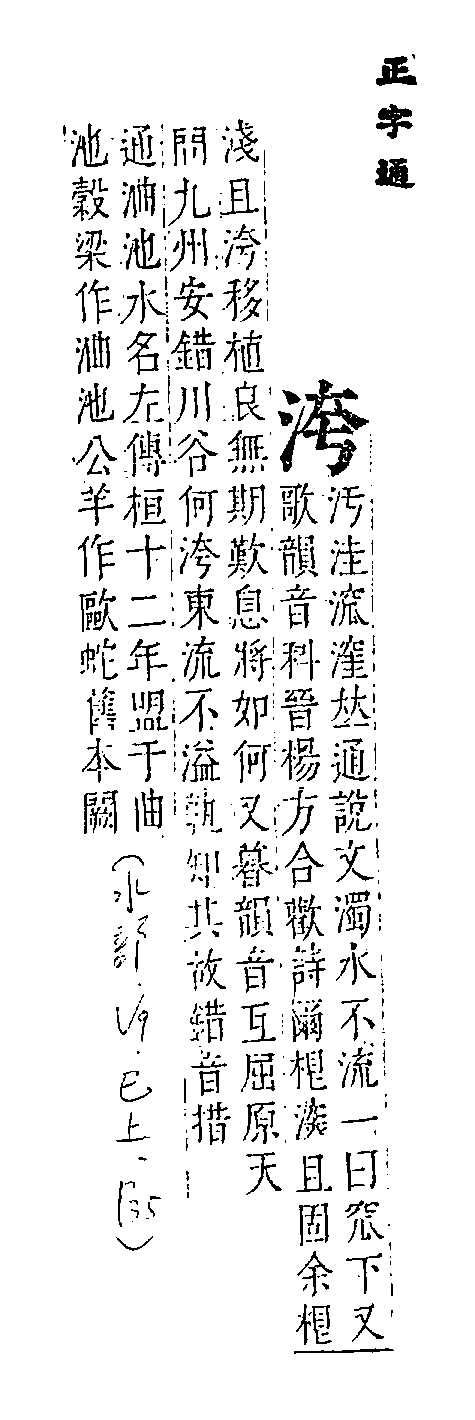 正字通
洿
汚洼溛漥𠀤通說文濁水不流一曰窊下又
歌韻音科晉楊方合歡詩爾根深且固余根
淺且洿移植良無期歎息將如何又暮韻音互屈原天
問九州安錯川谷何洿東流不溢孰知其故錯音措
通浀池水名左傳桓十二年盟于曲
池穀梁作浀池公羊作歐蛇舊本闕
(水部.巳上.)